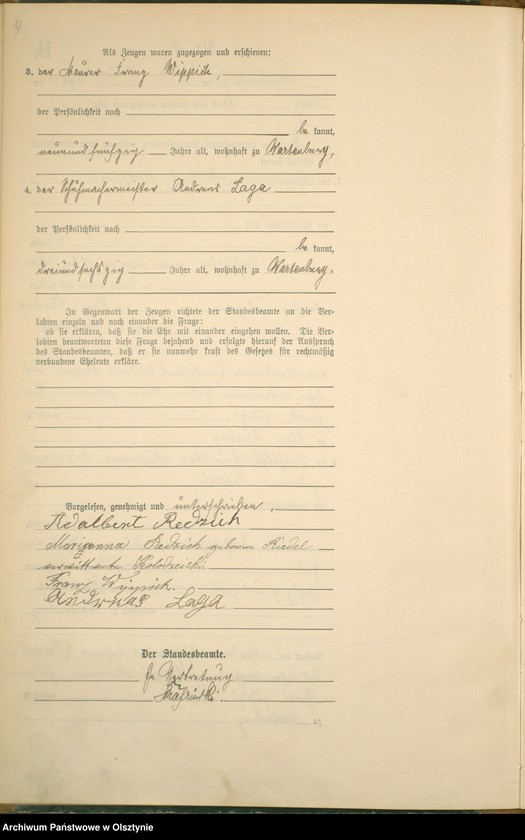 Als Zeugen waren zugezogen und erschienen:
3. der Maurer Franz Wippich,
der Persönlichkeit nach
be kannt,
neunundfünfzig Jahre alt, wohnhaft zu Wartenburg,
4. der Schuhmachermeister Andreas Laga
der Persönlichkeit nach
be kannt,
dreiundsechszig Jahre alt, wohnhaft zu Wartenburg.
In Gegenwart der Zeugen richtete der Standesbeamte an die Ver-
lobten einzeln und nach einander die Frage:
ob sie erklären, daß sie die Ehe mit einander eingehen wollen. Die Ver-
lobten beantworteten diese Frage bejahend und erfolgte hierauf der Ausspruch
des Standesbeamten, daß er sie nunmehr kraft des Gesetzes für rechtmäßig
verbundene Eheleute erkläre.
Vorgelesen, genehmigt und unterschrieben.
Adalbert Redzich
Marianna Redzich geborene Riedel
verwittwete
Franz Wippich.
Andreas Laga
Der Standesbeamte.
In Vertretung
Archiwum Państwowe w Olsztynie